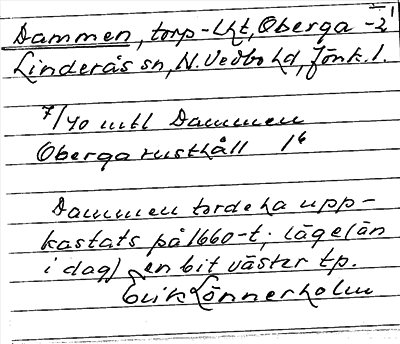 Dammen, torp-Lht, Oberga -2¹
Linderås sn, N. Vedbo hd, Jönk. l.
7/40 mtl Dammen
Oberga rusthåll 1⁶
Dammen torde ha upp-
kastats på 1660-t; läge (än
i dag) en bit väster tp.
Erik Lönnerholm